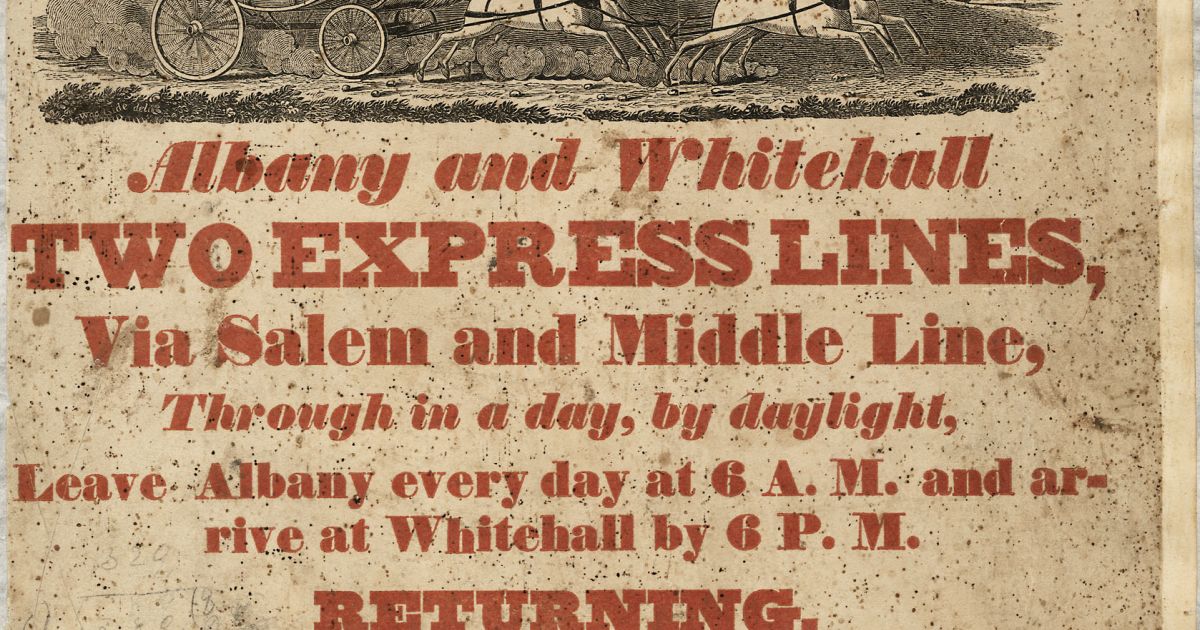 Albany and Whitehall
TWO EXPRESS LINES,
Via Salem and Middle Line,
Through in a day, by daylight,
Leave Albany every day at 6 A. M. and ar-
rive at Whitehall by 6 P. M.
320
18
RETURNING,